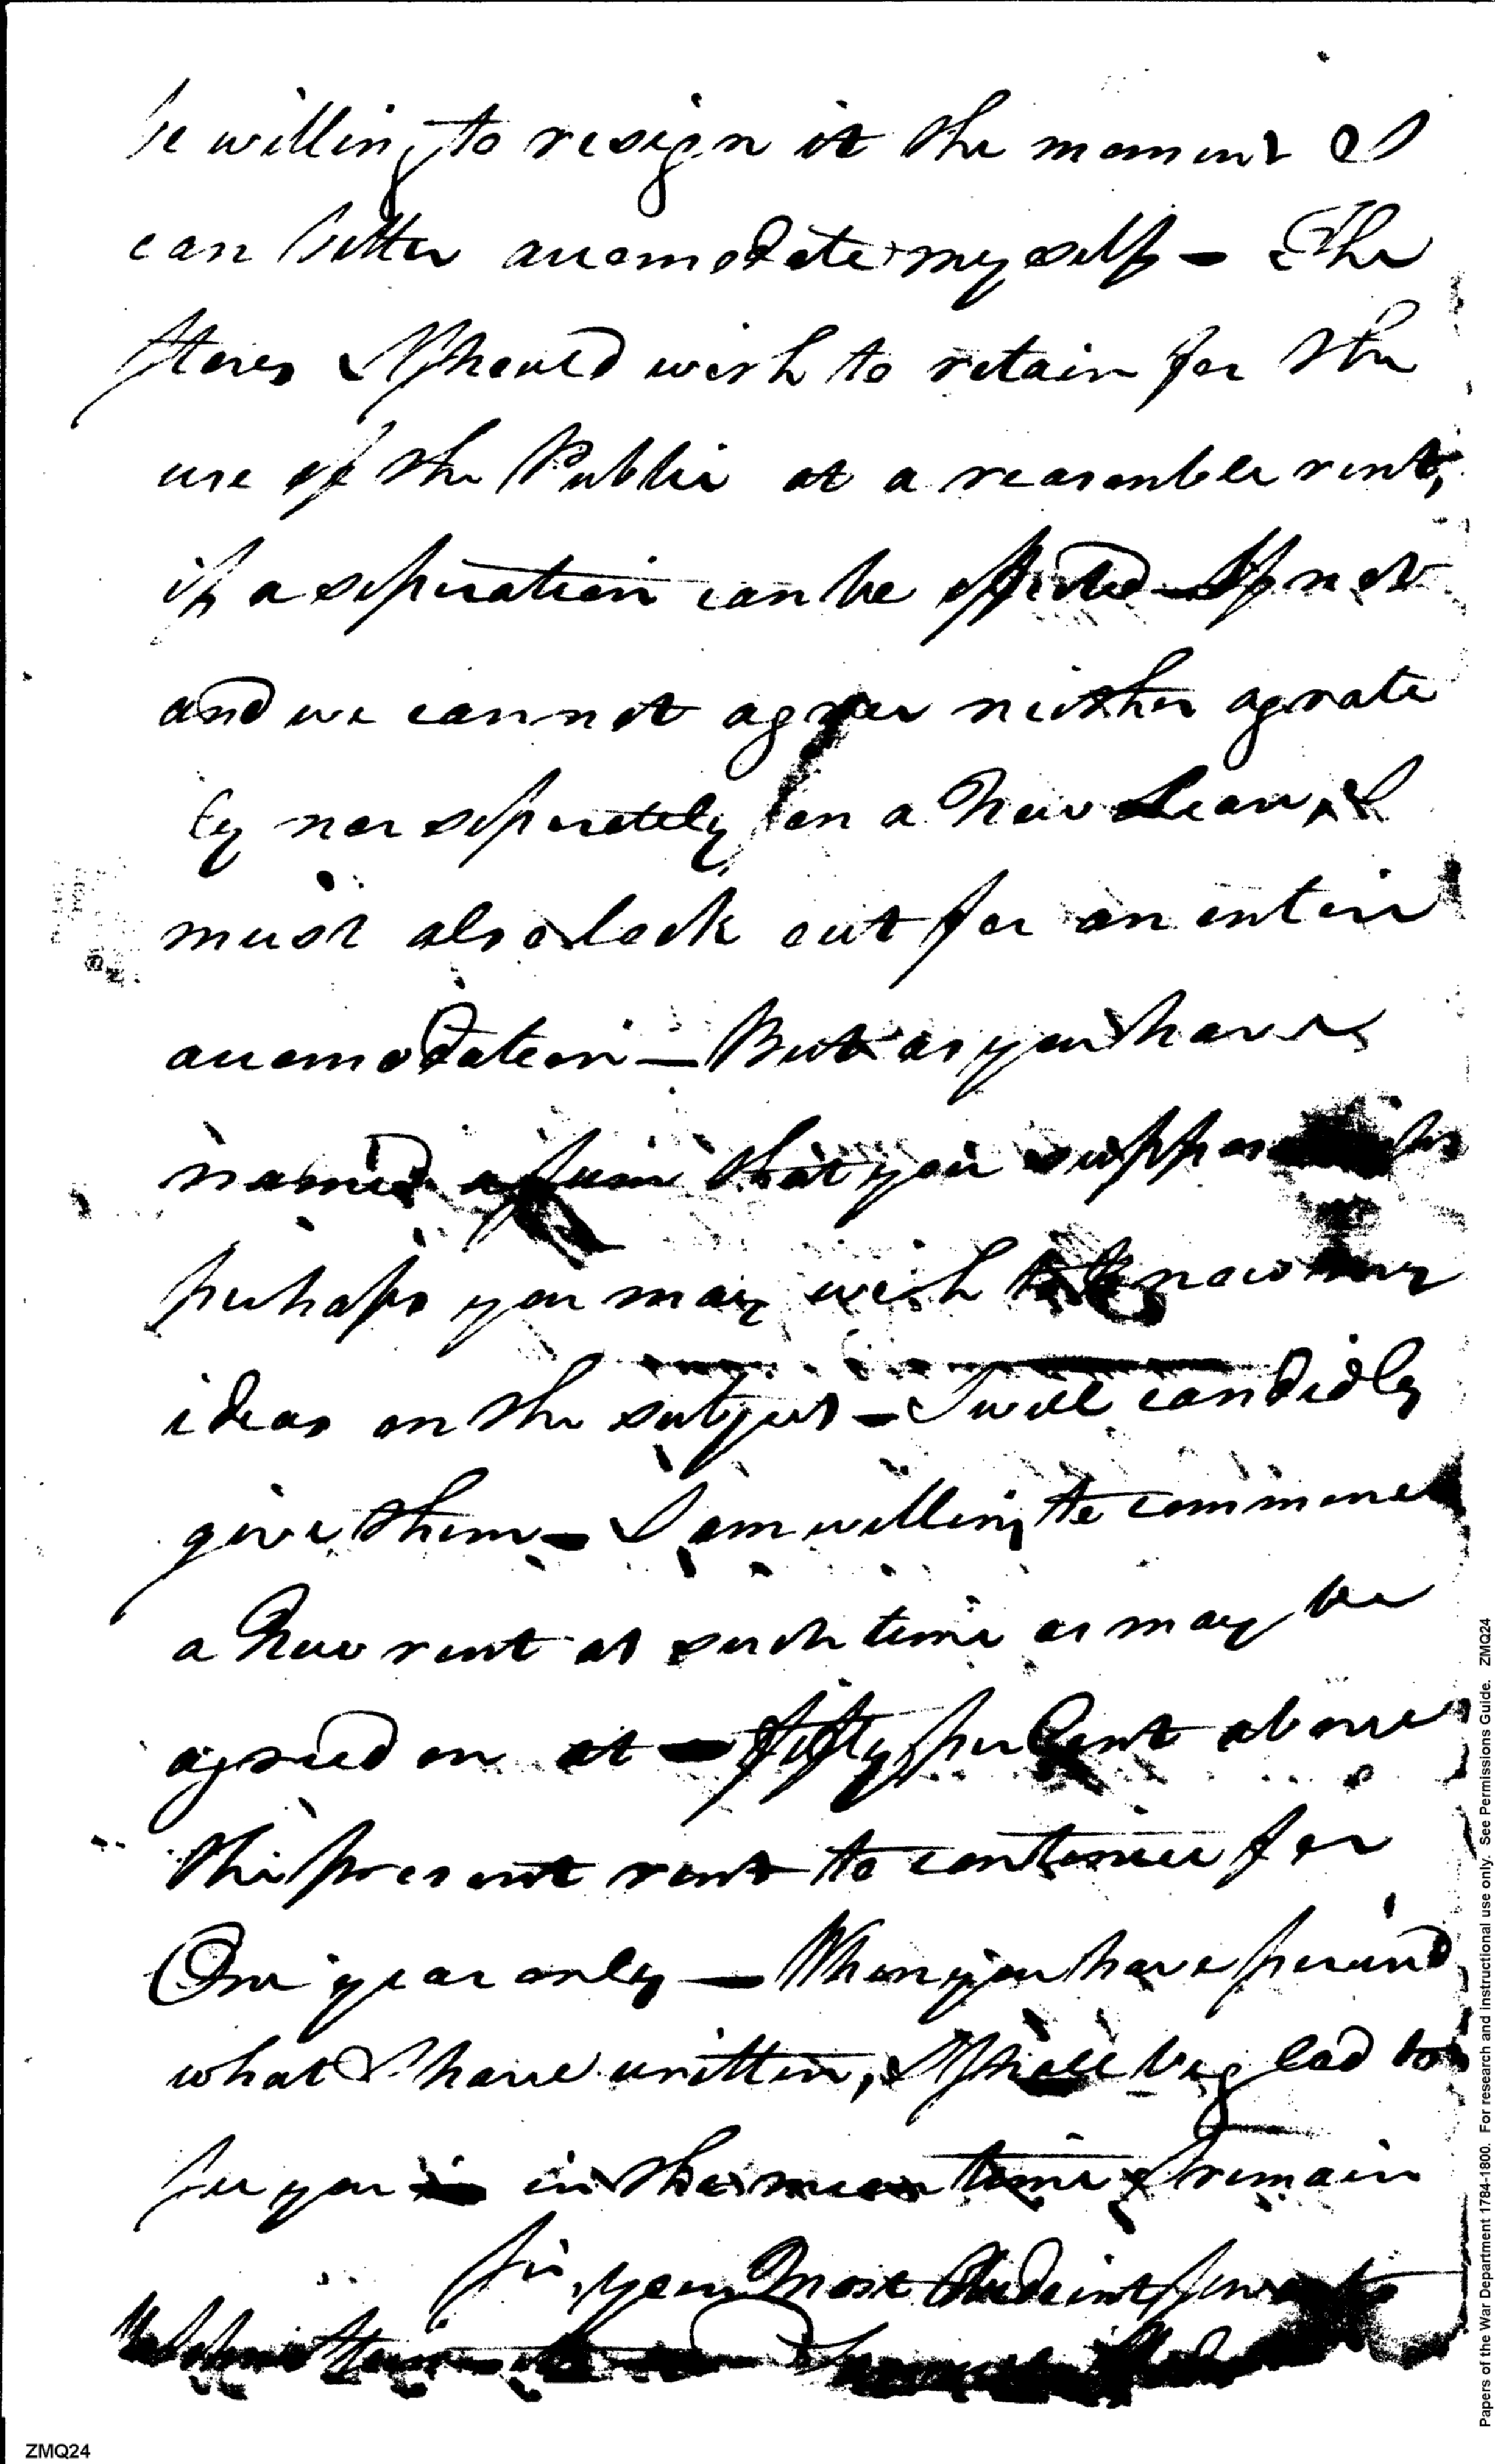 be willing to resign it the moment I
can better accomodate myself - The
Stores I should wish to retain for the
use of the Public at a reasonble rent,
if a seperation can be effected - If not
and we cannot agree neither agrate
ly nor seperately on a New Lease, I
must also look out for an entire
accomodation - But as you have
named a sum that you suppose
perhaps you may wish to know my
ideas on the subject - I will candidly
give them - I am willing to commence
a New rent at such time as may be
agreed on at - fifty per Cent above
the present rent to continue for
One year only - When you have perused
what I have written, I shall be glad to
see you in the mean time I remain
Sir, your Most Obedient Servant
Samuel
Papers of the War Department 1784-1800. For research and instructional use only. See Permissions Guide. ZMQ24
ZMQ24